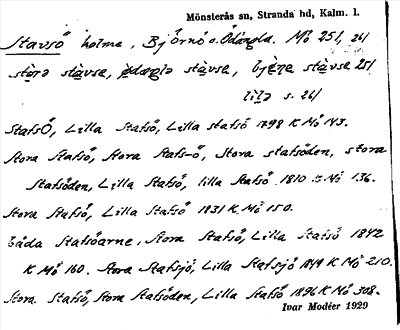 Mönsterås sn, Stranda hd, Kalm. l.
Stavsö holme, Björnö o. Ödängla. Mö 251, 261
störə stavse, ødæŋlə stavse, bjéŋe stavse 251
lilə s. 261
StafsÖ, Lilla Stafsö, Lilla stafsö 1798 K Mö 143.
Stora Stafsö, Stora Stafs-ö, Stora stafsöden, stora
Stafsöden, Lilla Stafsö, lilla Stafsö 1810 K Mö 136.
Stora Stafsö, Lilla Stafsö 1831 K Mö 150.
båda Stafsöarne, Stora Stafsö, Lilla Stafsö 1842
K Mö 160. Stora Stafsjö, Lilla Stafsjö 1849 K Mö 210.
Stora Stafsö, Stora Stafsöden, Lilla Stafsö 1896 K Mö 308.
Ivar Modéer 1929